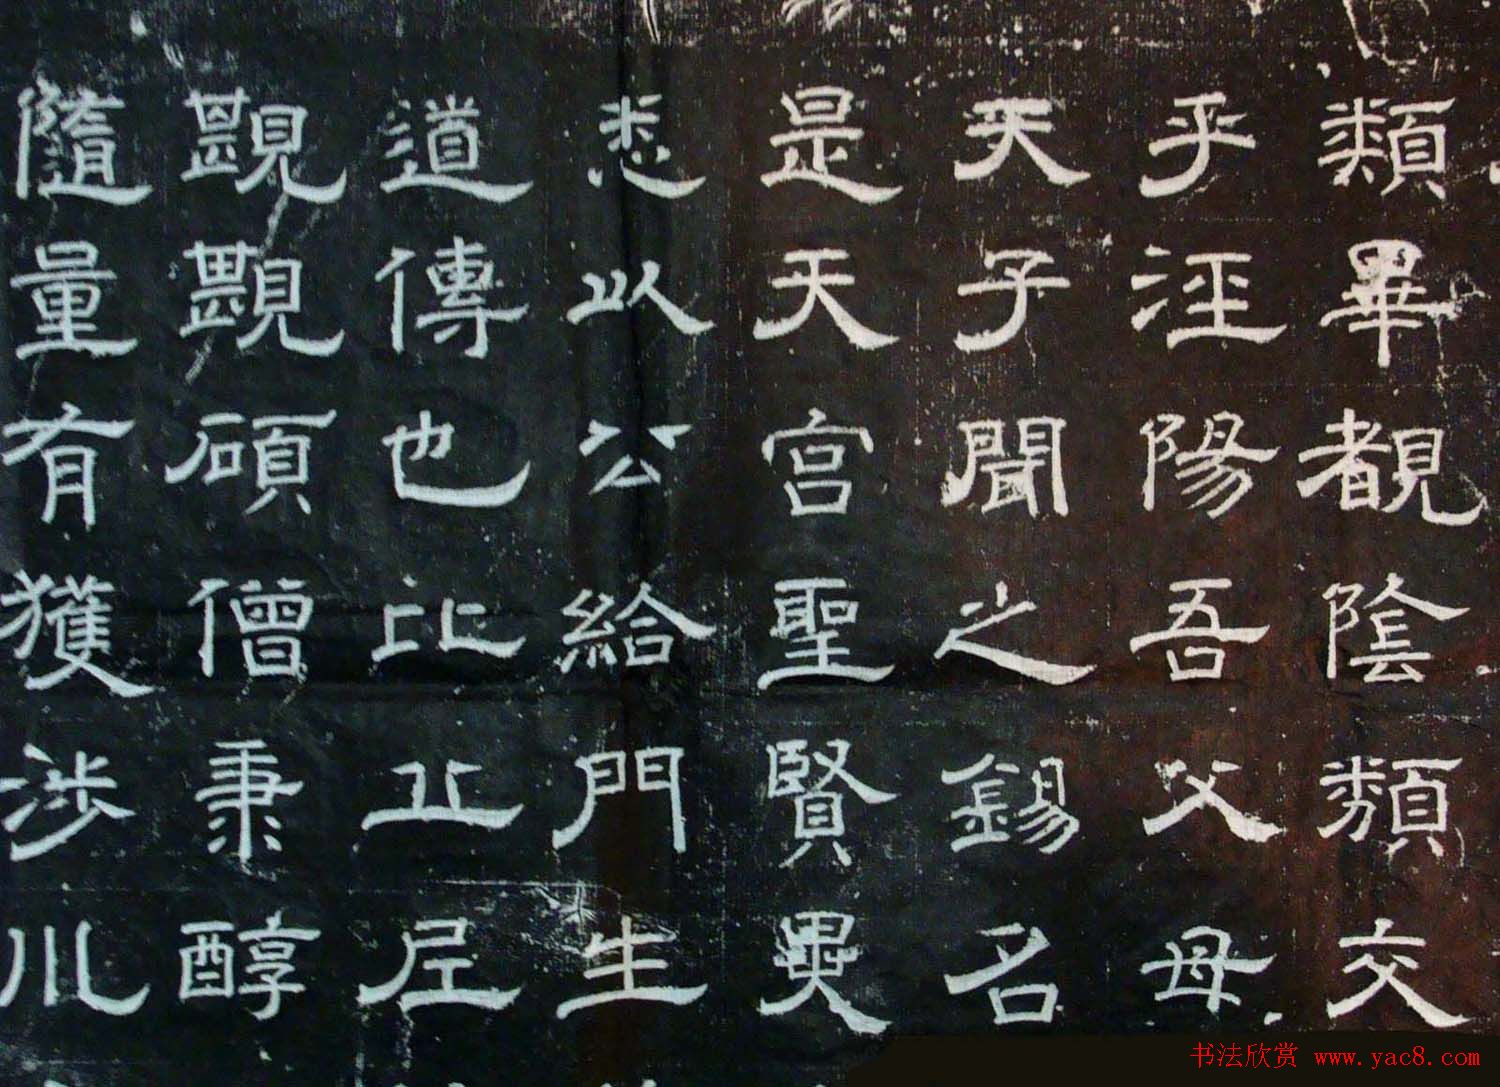 類畢覩陰類交
乎涇陽吾父母
天子聞之錫名
是天宮聖賢
悉以公給門生
道傳也比丘尼
顗顗碩僧秉醇
隨量有獲涉川
书法欣赏 www.yac8.com